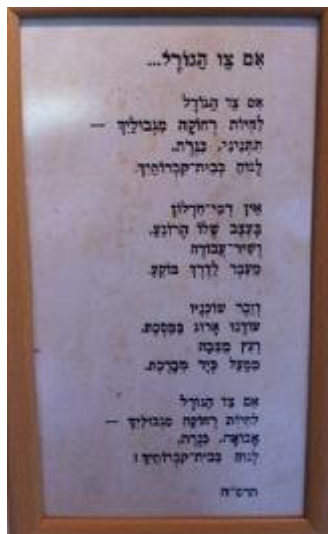 אִם צַו הַגּוֹרָל...
אִם צַו הַגּוֹרָל
לִחְיוֹת רְחוֹקָה מִגְּבוּלַיִךְ —
תִּתְּנִינִי, כִּנֶּרֶת,
לָנוּחַ בְּבֵית־קִבְרוֹתַיִךְ.
אֵין דֳּמִי־חִדָּלוֹן
בָּעֶצֶב שֶׁלּוֹ הָרוֹגֵעַ.
וְשִׁיר־עֲבוֹדָה
מֵעֵבֶר לַדֶּרֶךְ בּוֹקֵעַ.
וְזֵכֶר שׁוֹכְנָיו
עוֹדֶנּוּ אָרוּג בַּמַּסֶּכֶת.
וְעֵץ מַצֵּבָה
מִמַּעַל כְּיָד מְבָרֶכֶת.
אִם צַו הַגּוֹרָל
לִחְיוֹת רְחוֹקָה מִגְּבוּלַיִךְ —
אָבוֹאָה, כִּנֶּרֶת,
לָנוּחַ בְּבֵית־קִבְרוֹתַיִךְ!